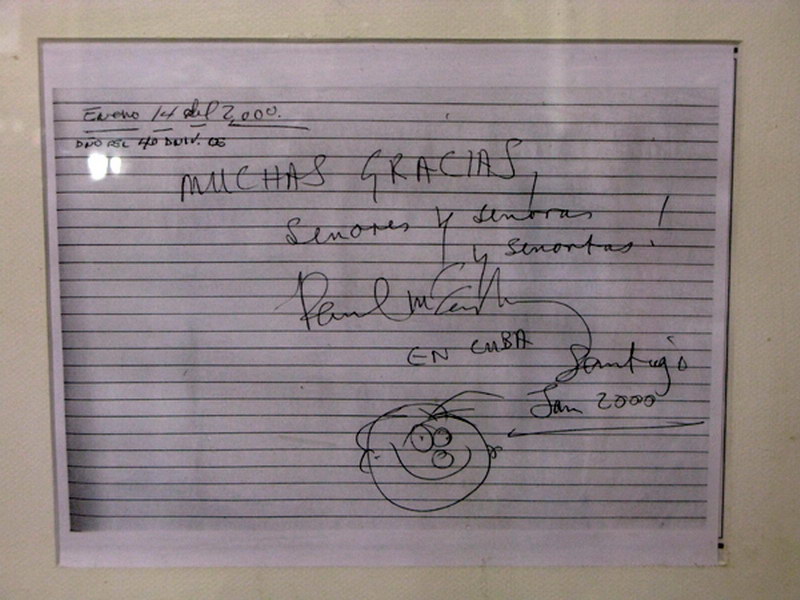 Enero 14 del 2,000.
MUCHAS GRACIAS,
Senores y senoras !
y senoritas.
Paul McCartney
EN CUBA
Santiago
Jan 2000